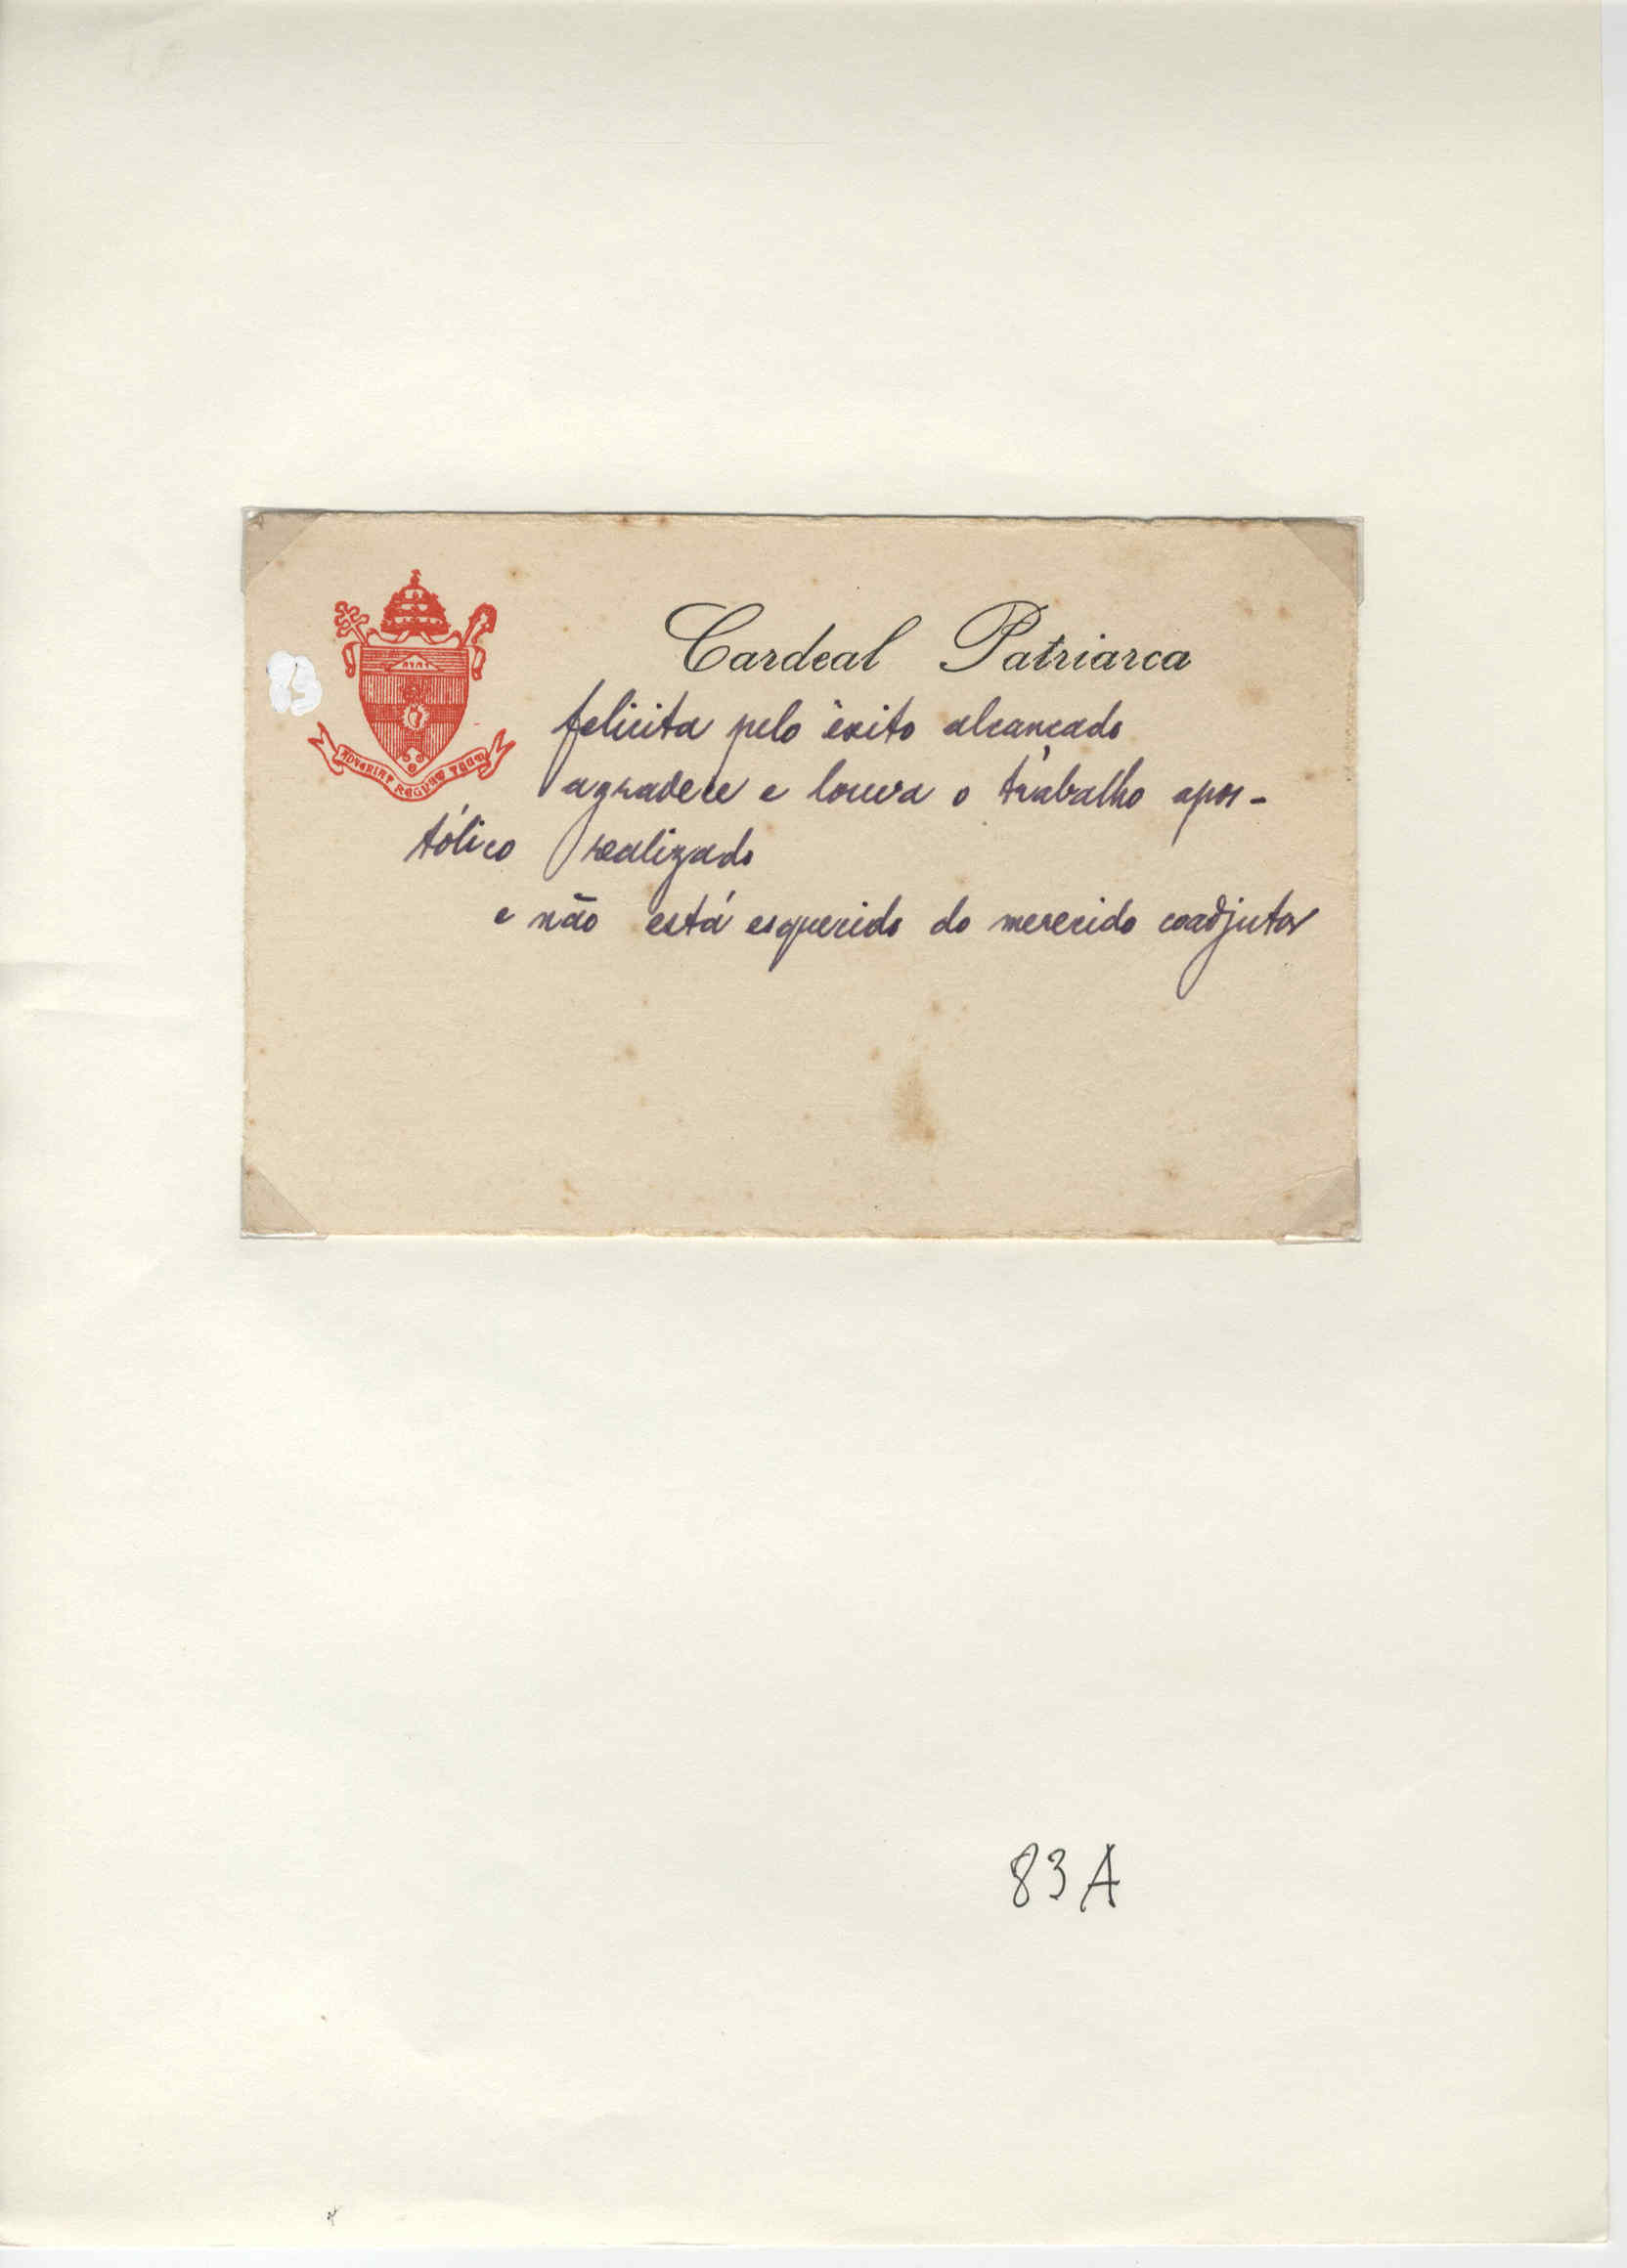 Cardeal Patriarca
felicita pelo êxito alcançado
agradece e louva o trabalho apos-
tólico realizado
e não está esquecido do merecido coadjutor
ADVENIAT REGNUM TUUM
83A